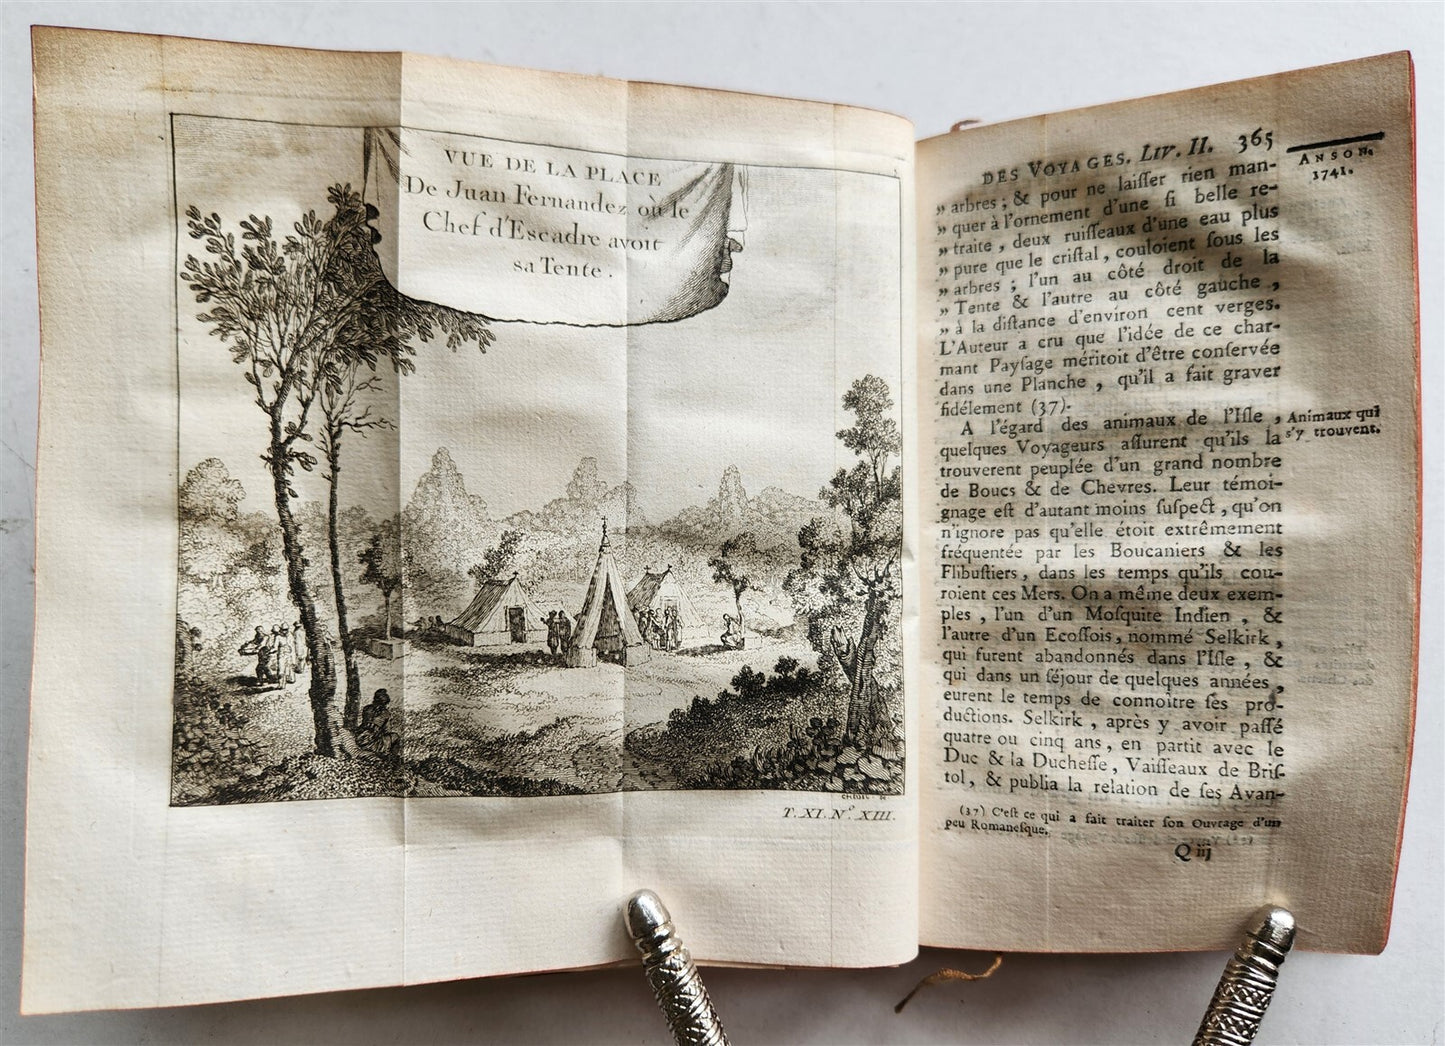 VUE DE LA PLACE
De Juan Fernandez où le
Chef d'Escadre avoit
sa Tente.
T. XI. N.º XIII.
DES VOYAGES. LIV. II. 365
ANSON.
1741.
„ arbres ; & pour ne laiſſer rien man-
„ quer à l'ornement d'une ſi belle re-
„ traite, deux ruiſſeaux d'une eau plus
„ pure que le criſtal, couloient ſous les
„ arbres ; l'un au côté droit de la
„ Tente & l'autre au côté gauche,
„ à la diſtance d'environ cent verges.
L'Auteur a cru que l'idée de ce char-
mant Payſage méritoit d'être conſervée
dans une Planche, qu'il a fait graver
fidélement (37).
A l'égard des animaux de l'Iſle,
Animaux qui
s'y trouvent.
quelques Voyageurs aſſurent qu'ils la
trouverent peuplée d'un grand nombre
de Boucs & de Chevres. Leur témoi-
gnage eſt d'autant moins ſuſpect, qu'on
n'ignore pas qu'elle étoit extrêmement
fréquentée par les Boucaniers & les
Flibuſtiers, dans les temps qu'ils cou-
roient ces Mers. On a même deux exem-
ples, l'un d'un Moſquite Indien, &
l'autre d'un Ecoſſois, nommé Selkirk,
qui furent abandonnés dans l'Iſle, &
qui dans un ſéjour de quelques années,
eurent le temps de connoître ſes pro-
ductions. Selkirk, après y avoir paſſé
quatre ou cinq ans, en partit avec le
Duc & la Ducheſſe, Vaiſſeaux de Briſ-
tol, & publia la relation de ſes Avan-
(37) C'eſt ce qui a fait traiter ſon Ouvrage d'un
peu Romaneſque.
Q iij